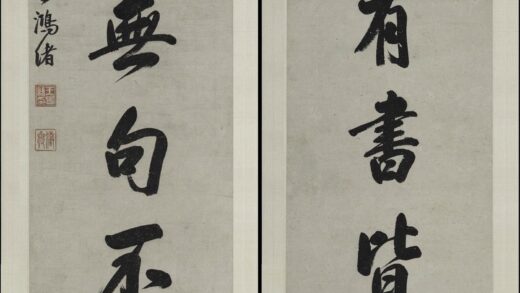 有書皆
無句不
鴻緒